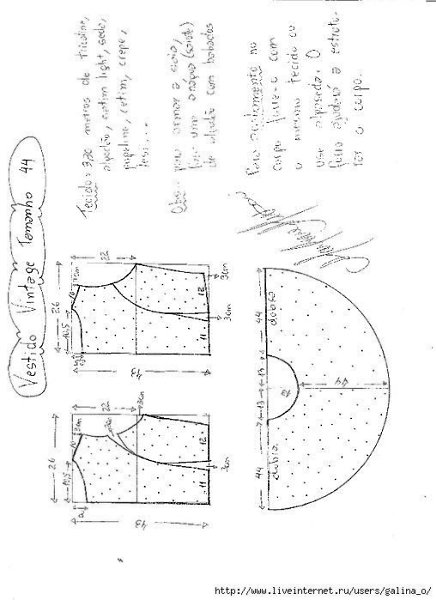 Vestido Vintage Tamanho 44
Tecido: 3,20 metros de tricoline,
algodão, cetim light, seda,
popeline, cetim, crepe,
Obs: para armar a saia,
uma anágua
de algodão com babados
Para acabamento no
corpo forre-o com
o mesmo tecido ou
use O
forro ajudará a estrutu-
rar o corpo.
26
22
43
3cm
11
12
3cm
26
22
43
3cm
11
12
44
13
13
44
dobra
dobra
44
http://www.liveinternet.ru/users/galina_o/